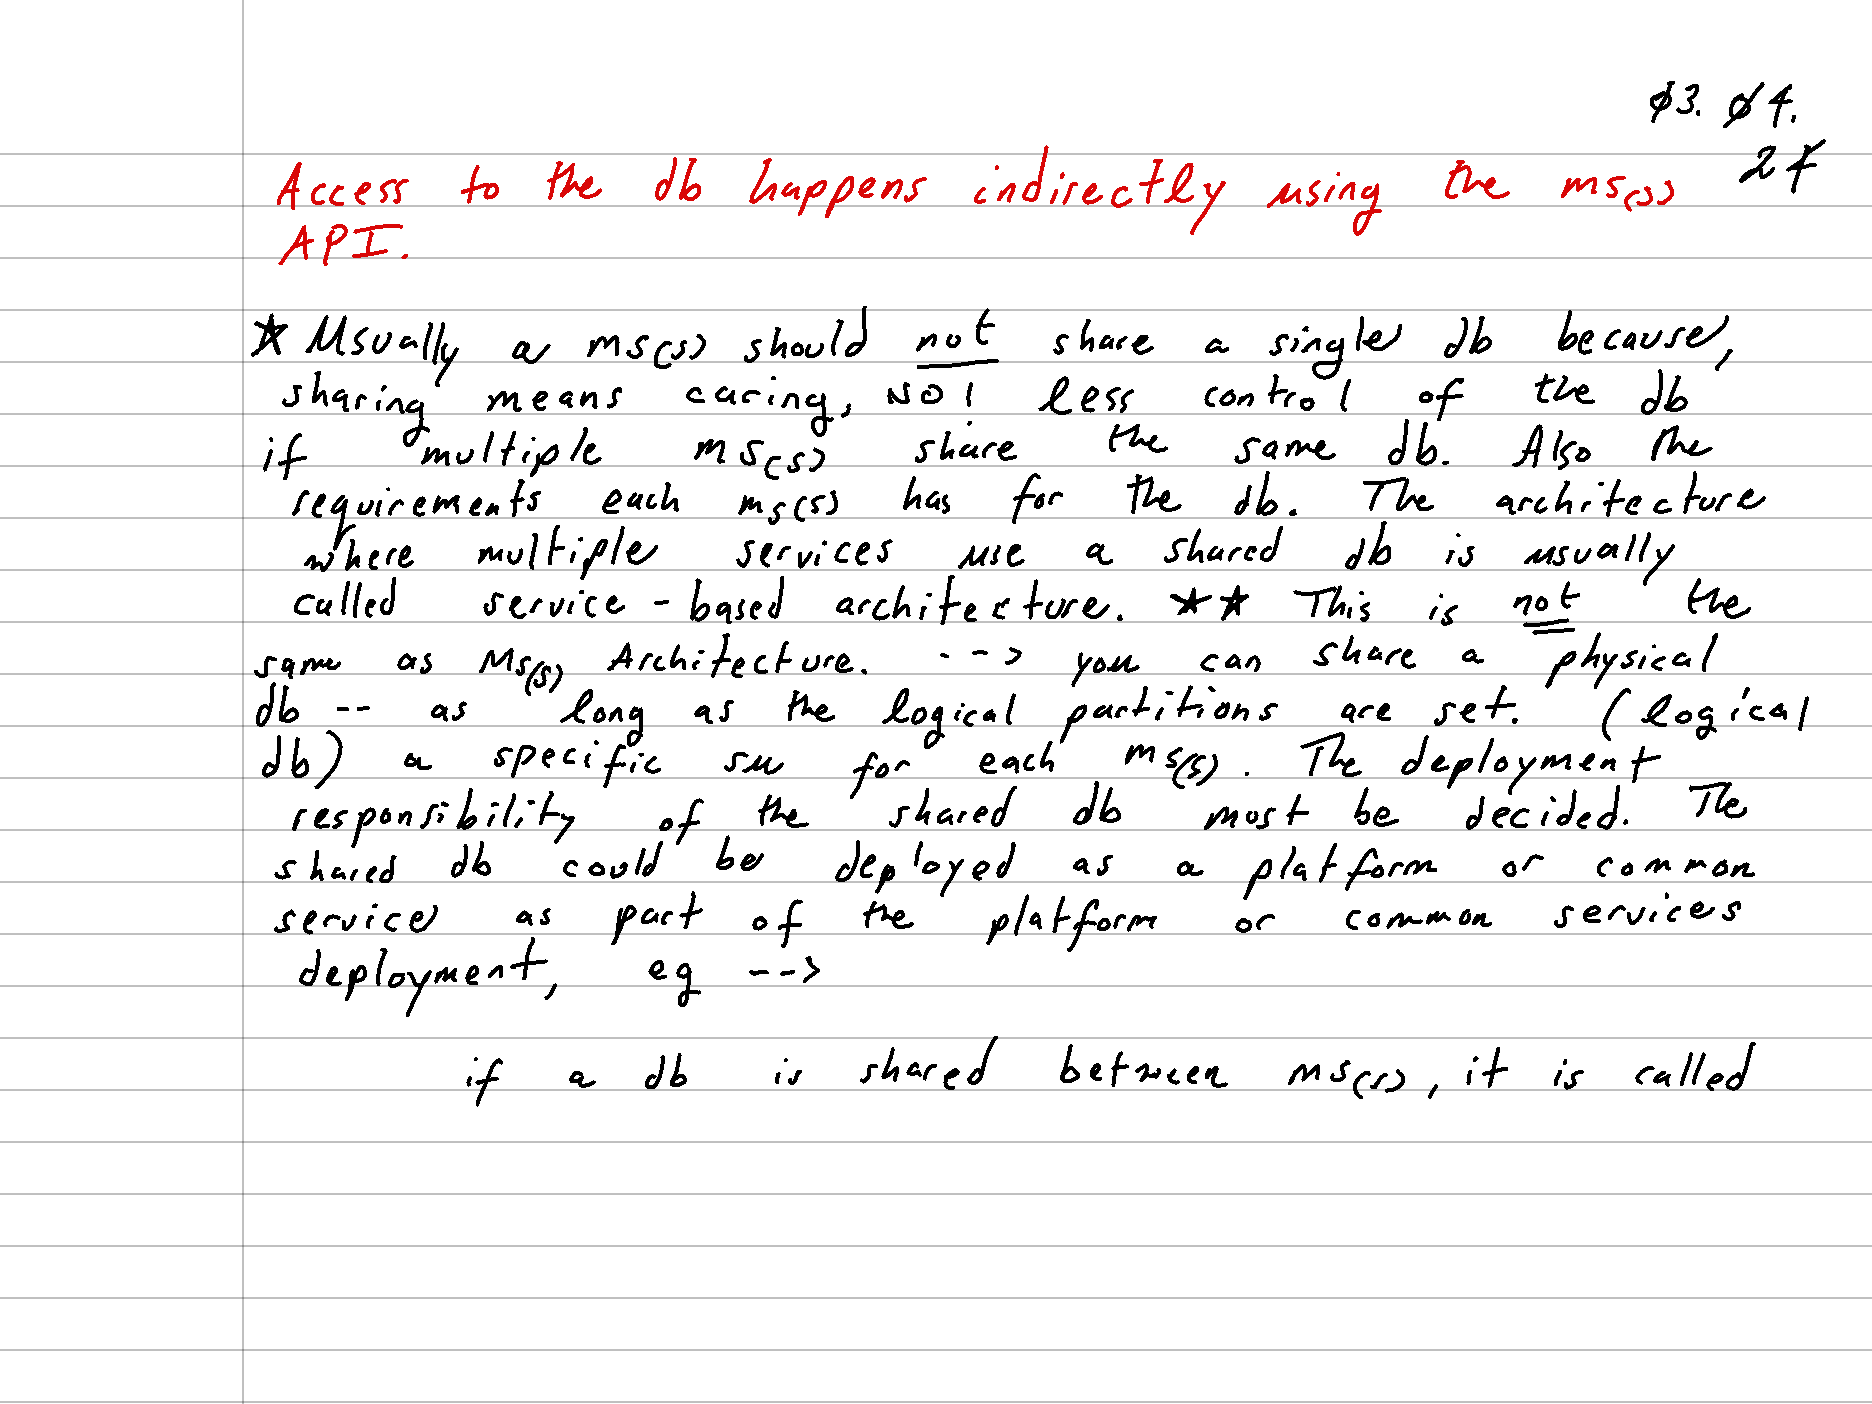 03. 04.
27
Access to the db happens indirectly using the ms(s)
API.
* Usually a ms(s) should not share a single db because,
sharing means caring, NO! less control of the db
if multiple ms(s) share the same db. Also the
requirements each ms(s) has for the db. The architecture
where multiple services use a shared db is usually
called service-based architecture. ** This is not the
same as Ms(s) Architecture. --> you can share a physical
db -- as long as the logical partitions are set. (logical
db) a specific su for each ms(s). The deployment
responsibility of the shared db must be decided. The
shared db could be deployed as a platform or common
service as part of the platform or common services
deployment, eg -->
if a db is shared between ms(s), it is called